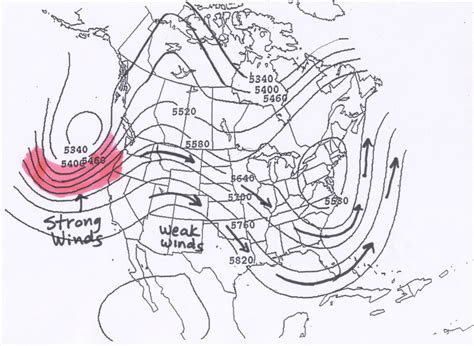 5340
5400
5460
5520
5580
5340
5400
5460
5640
5700
5580
5760
5820
Strong
Winds
Weak
winds